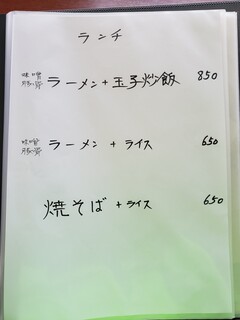 ランチ
味噌 豚骨 ラーメン+玉子炒飯 850
味噌 豚骨 ラーメン + ライス 650
焼そば + ライス 650